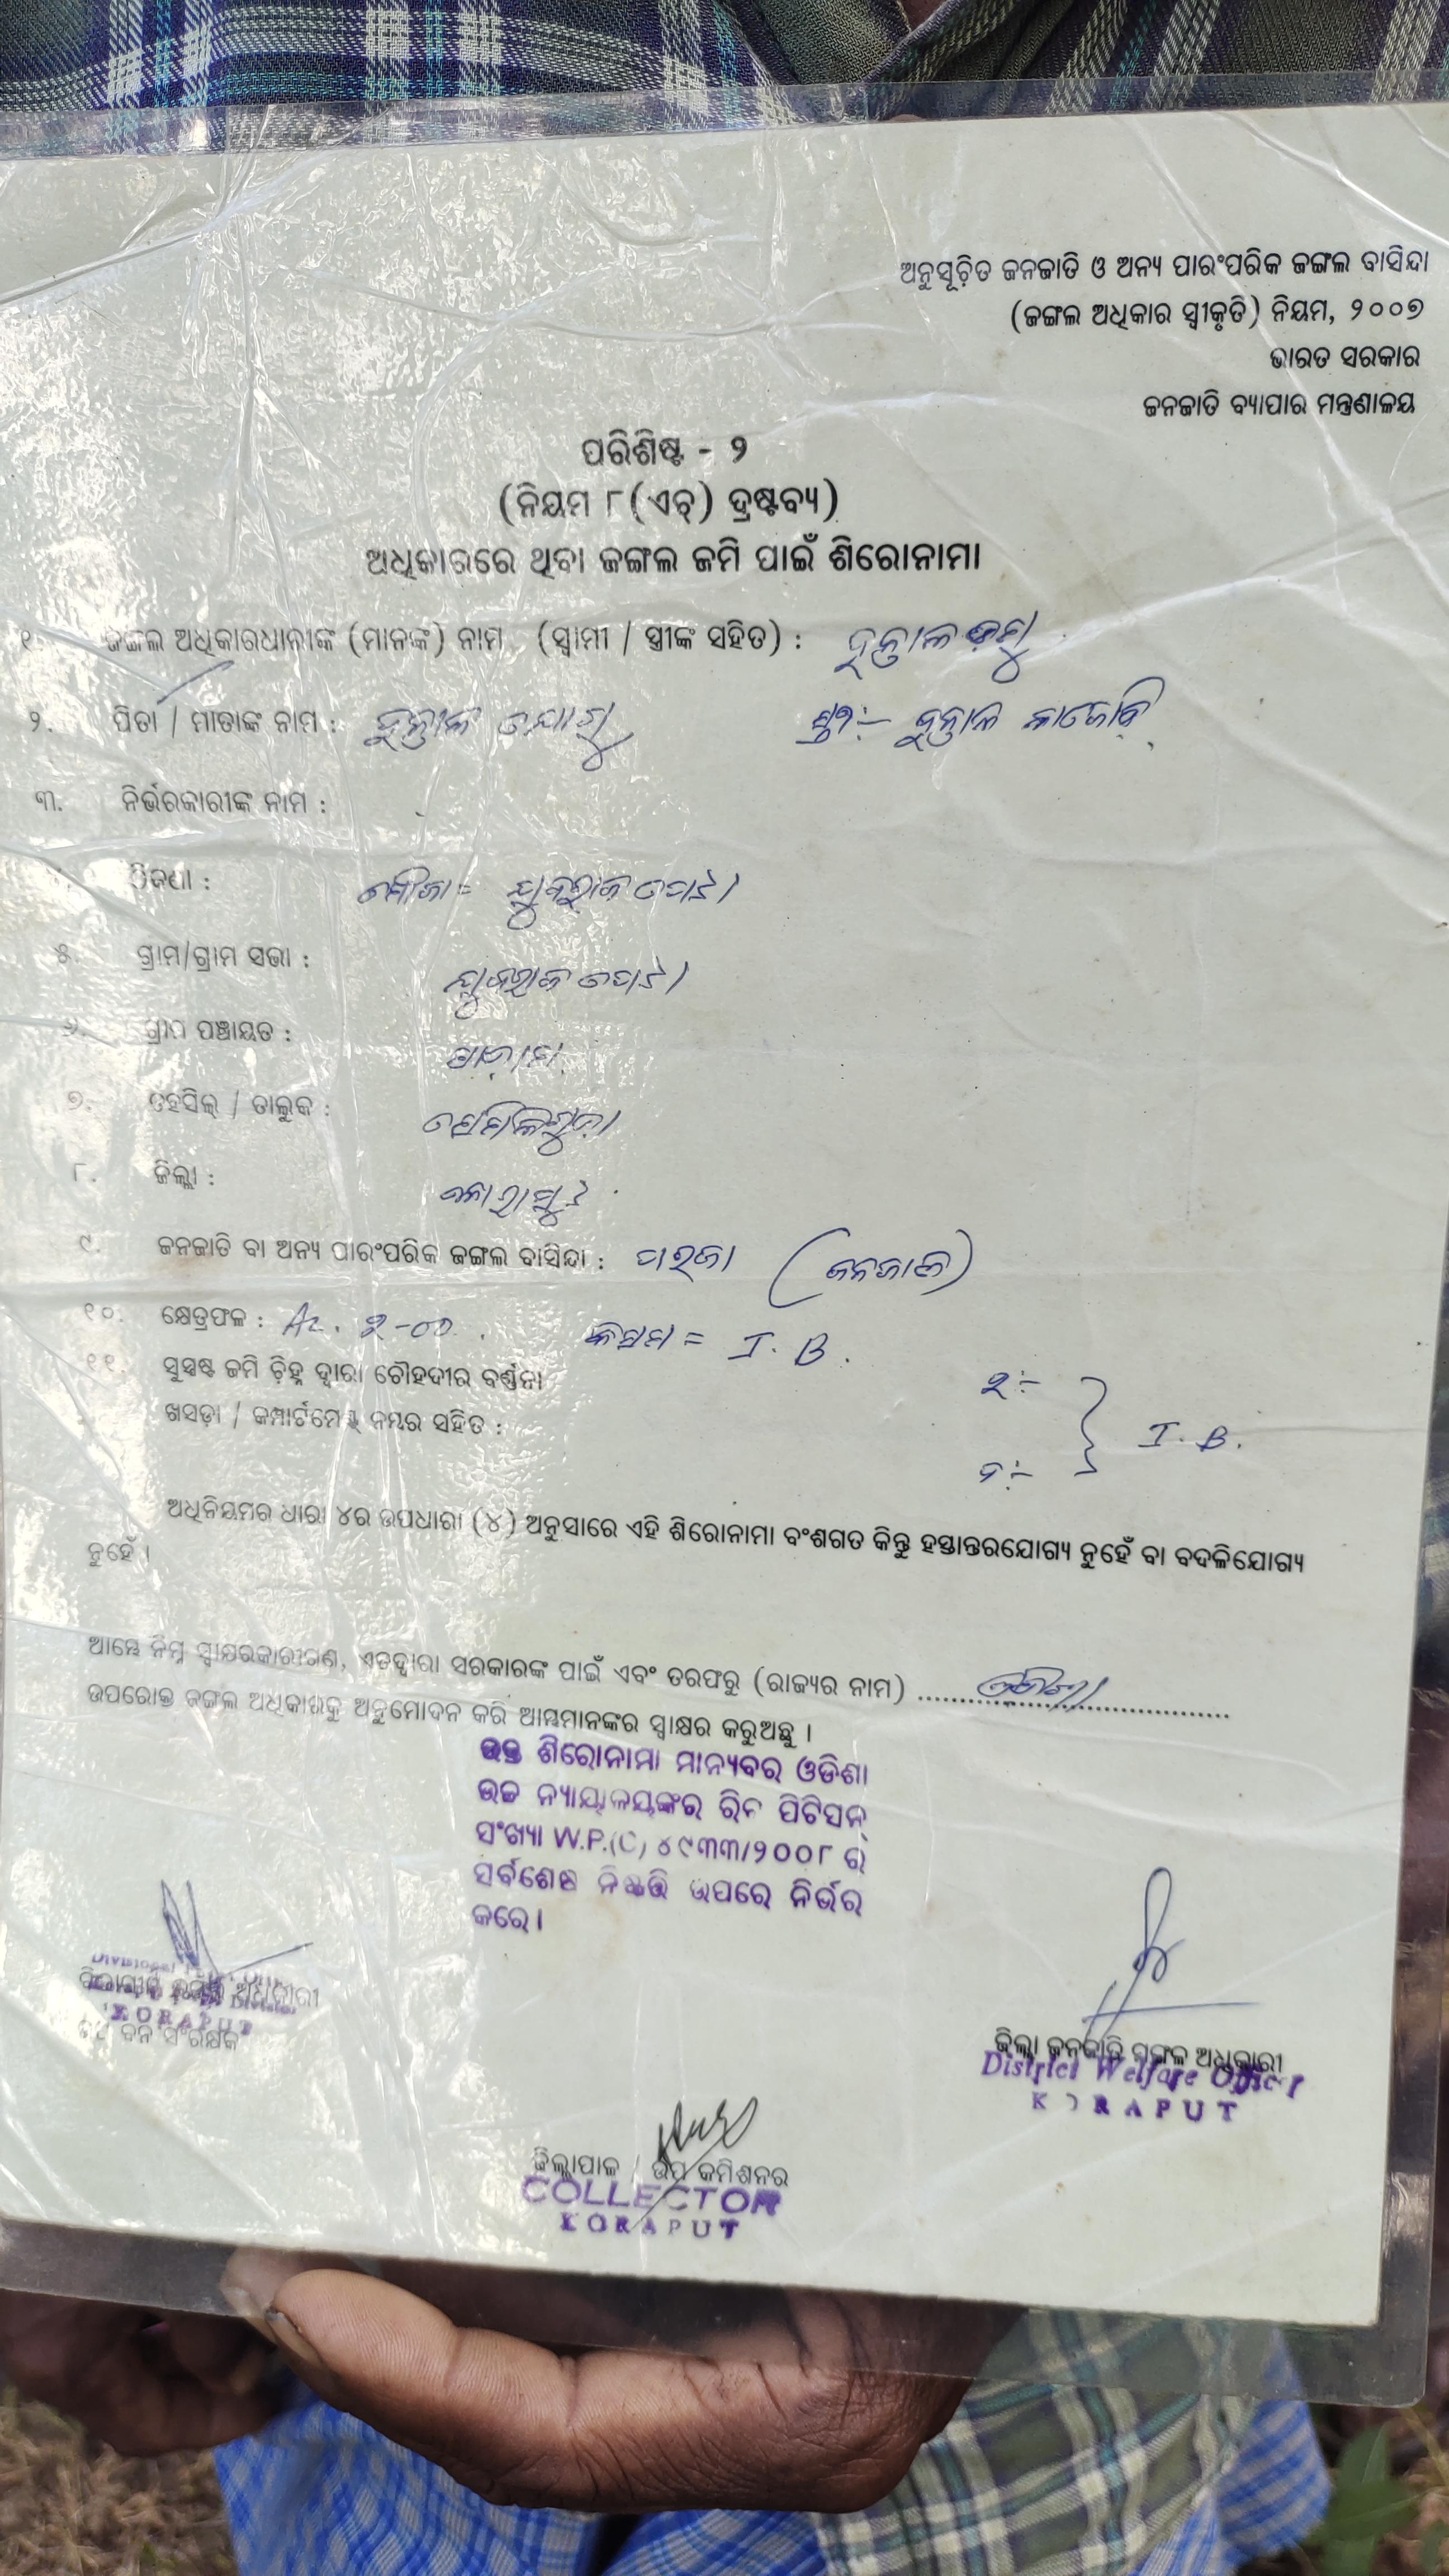 ଅନୁସୂଚିତ ଜନଜାତି ଓ ଅନ୍ୟ ପାରଂପରିକ ଜଙ୍ଗଲ ବାସିନ୍ଦା
(ଜଙ୍ଗଲ ଅଧିକାର ସ୍ୱୀକୃତି) ନିୟମ, ୨୦୦୭
ଭାରତ ସରକାର
ଜନଜାତି ବ୍ୟାପାର ମନ୍ତ୍ରଣାଳୟ
ପରିଶିଷ୍ଟ - ୨
(ନିୟମ ୮(ଏଚ୍) ଦ୍ରଷ୍ଟବ୍ୟ)
ଅଧିକାରରେ ଥିବା ଜଙ୍ଗଲ ଜମି ପାଇଁ ଶିରୋନାମା
୧. ଜଙ୍ଗଲ ଅଧିକାରଧାରୀଙ୍କ (ମାନଙ୍କ) ନାମ (ସ୍ୱାମୀ / ସ୍ତ୍ରୀଙ୍କ ସହିତ) :
୨. ପିତା / ମାତାଙ୍କ ନାମ :
୩. ନିର୍ଭରକାରୀଙ୍କ ନାମ :
ଠିକଣା : ମୌଜା=
୫. ଗ୍ରାମ/ଗ୍ରାମ ସଭା :
୬. ଗ୍ରାମ ପଞ୍ଚାୟତ :
୭. ତହସିଲ୍ / ତାଲୁକ :
୮. ଜିଲ୍ଲା : କୋରାପୁଟ
୯. ଜନଜାତି ବା ଅନ୍ୟ ପାରଂପରିକ ଜଙ୍ଗଲ ବାସିନ୍ଦା : ପରଜା (ଜନଜାତି)
୧୦. କ୍ଷେତ୍ରଫଳ : Ac. ୨-୦୦ କିସମ = I.B.
୧୧. ସୁସ୍ପଷ୍ଟ ଜମି ଚିହ୍ନ ଦ୍ୱାରା ଚୌହଦୀର ବର୍ଣ୍ଣନା
ଖସଡ଼ା / କମ୍ପାର୍ଟମେଣ୍ଟ ନମ୍ବର ସହିତ : I.B.
ଅଧିନିୟମର ଧାରା ୪ର ଉପଧାରା (୪) ଅନୁସାରେ ଏହି ଶିରୋନାମା ବଂଶଗତ କିନ୍ତୁ ହସ୍ତାନ୍ତରଯୋଗ୍ୟ ନୁହେଁ ବା ବଦଳିଯୋଗ୍ୟ
ନୁହେଁ ।
ଆମ୍ଭେ ନିମ୍ନ ସ୍ୱାକ୍ଷରକାରୀଗଣ, ଏତଦ୍ୱାରା ସରକାରଙ୍କ ପାଇଁ ଏବଂ ତରଫରୁ (ରାଜ୍ୟର ନାମ) ଓଡିଶା
ଉପରୋକ୍ତ ଜଙ୍ଗଲ ଅଧିକାରକୁ ଅନୁମୋଦନ କରି ଆମ୍ଭମାନଙ୍କର ସ୍ୱାକ୍ଷର କରୁଅଛୁ ।
ଉକ୍ତ ଶିରୋନାମା ମାନ୍ୟବର ଓଡିଶା
ଉଚ୍ଚ ନ୍ୟାୟାଳୟଙ୍କର ରିଟ ପିଟିସନ୍
ସଂଖ୍ୟା W.P.(C) ୪୯୩୩/୨୦୦୮ ର
ସର୍ବଶେଷ ନିଷ୍ପତ୍ତି ଉପରେ ନିର୍ଭର
କରେ ।
ବିଭାଗୀୟ ଜଙ୍ଗଲ ଅଧିକାରୀ
KORAPUT
ବନ ସଂରକ୍ଷକ
ଜିଲ୍ଲା ଜନଜାତି ମଙ୍ଗଳ ଅଧିକାରୀ
District Welfare Officer
KORAPUT
ଜିଲ୍ଲାପାଳ / ଉପ କମିଶନର
COLLECTOR
KORAPUT